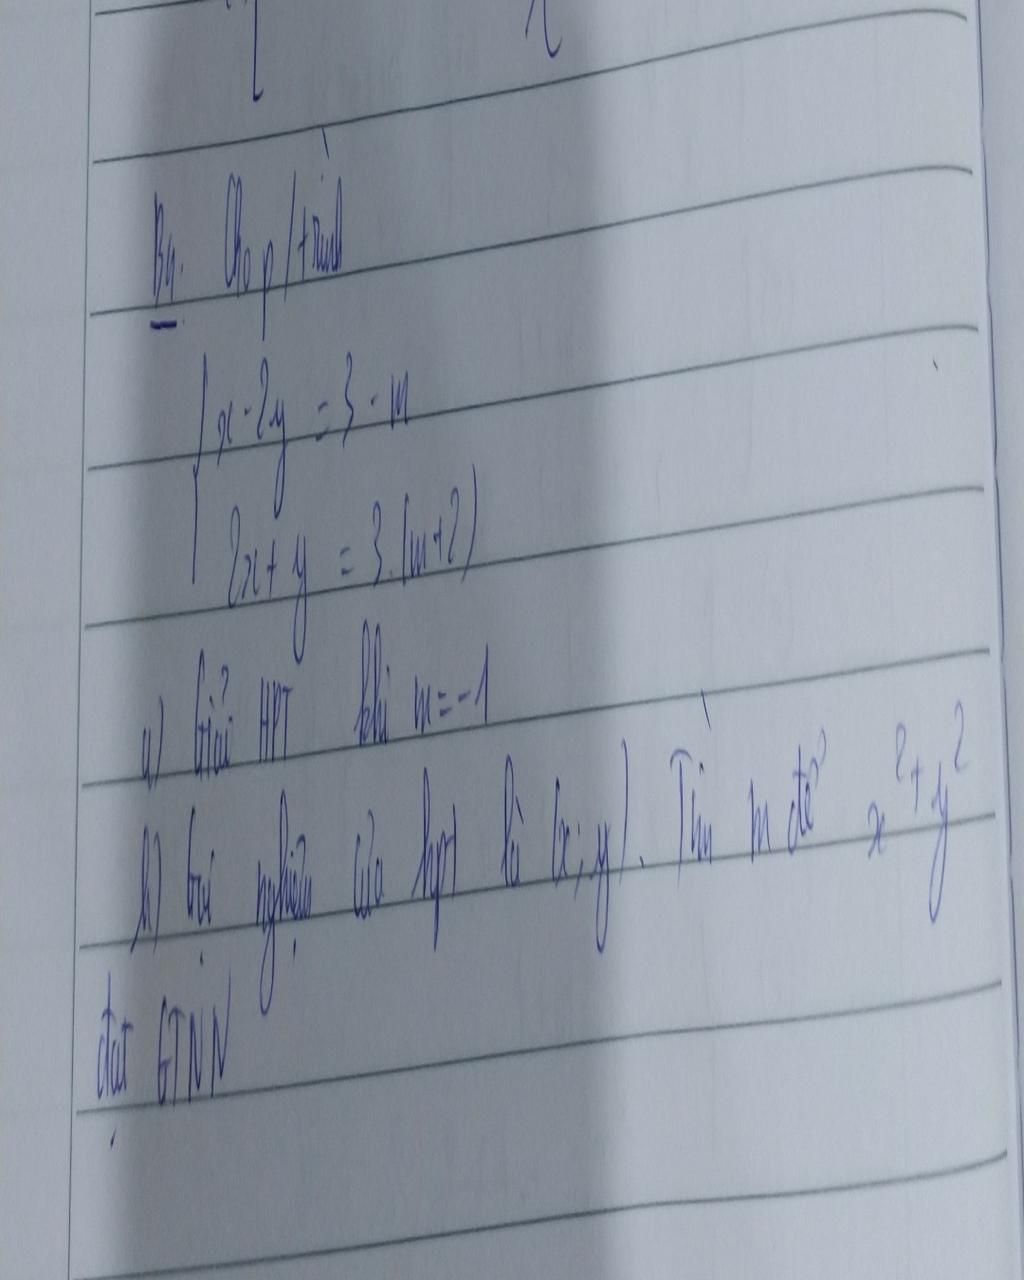 B4. Cho p/trình
x - 2y = 3 - m
2x + y = 3.(m+2)
a) Giải HPT khi m = -1
b) Gọi nghiệm của hpt là (x; y). Tìm m để x² + y²
đạt GTNN